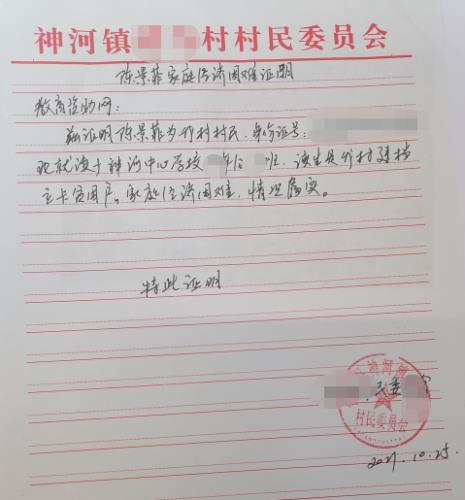 神河镇 村村民委员会
陈景菲家庭经济困难证明
教育资助网：
兹证明陈景菲为我村村民，身份证号：
现就读于神河中心学校 年级 班，该生是我村建档
立卡贫困户。家庭经济困难，情况属实。
特此证明
神河镇
民委
村民委员会
2021.10.25.